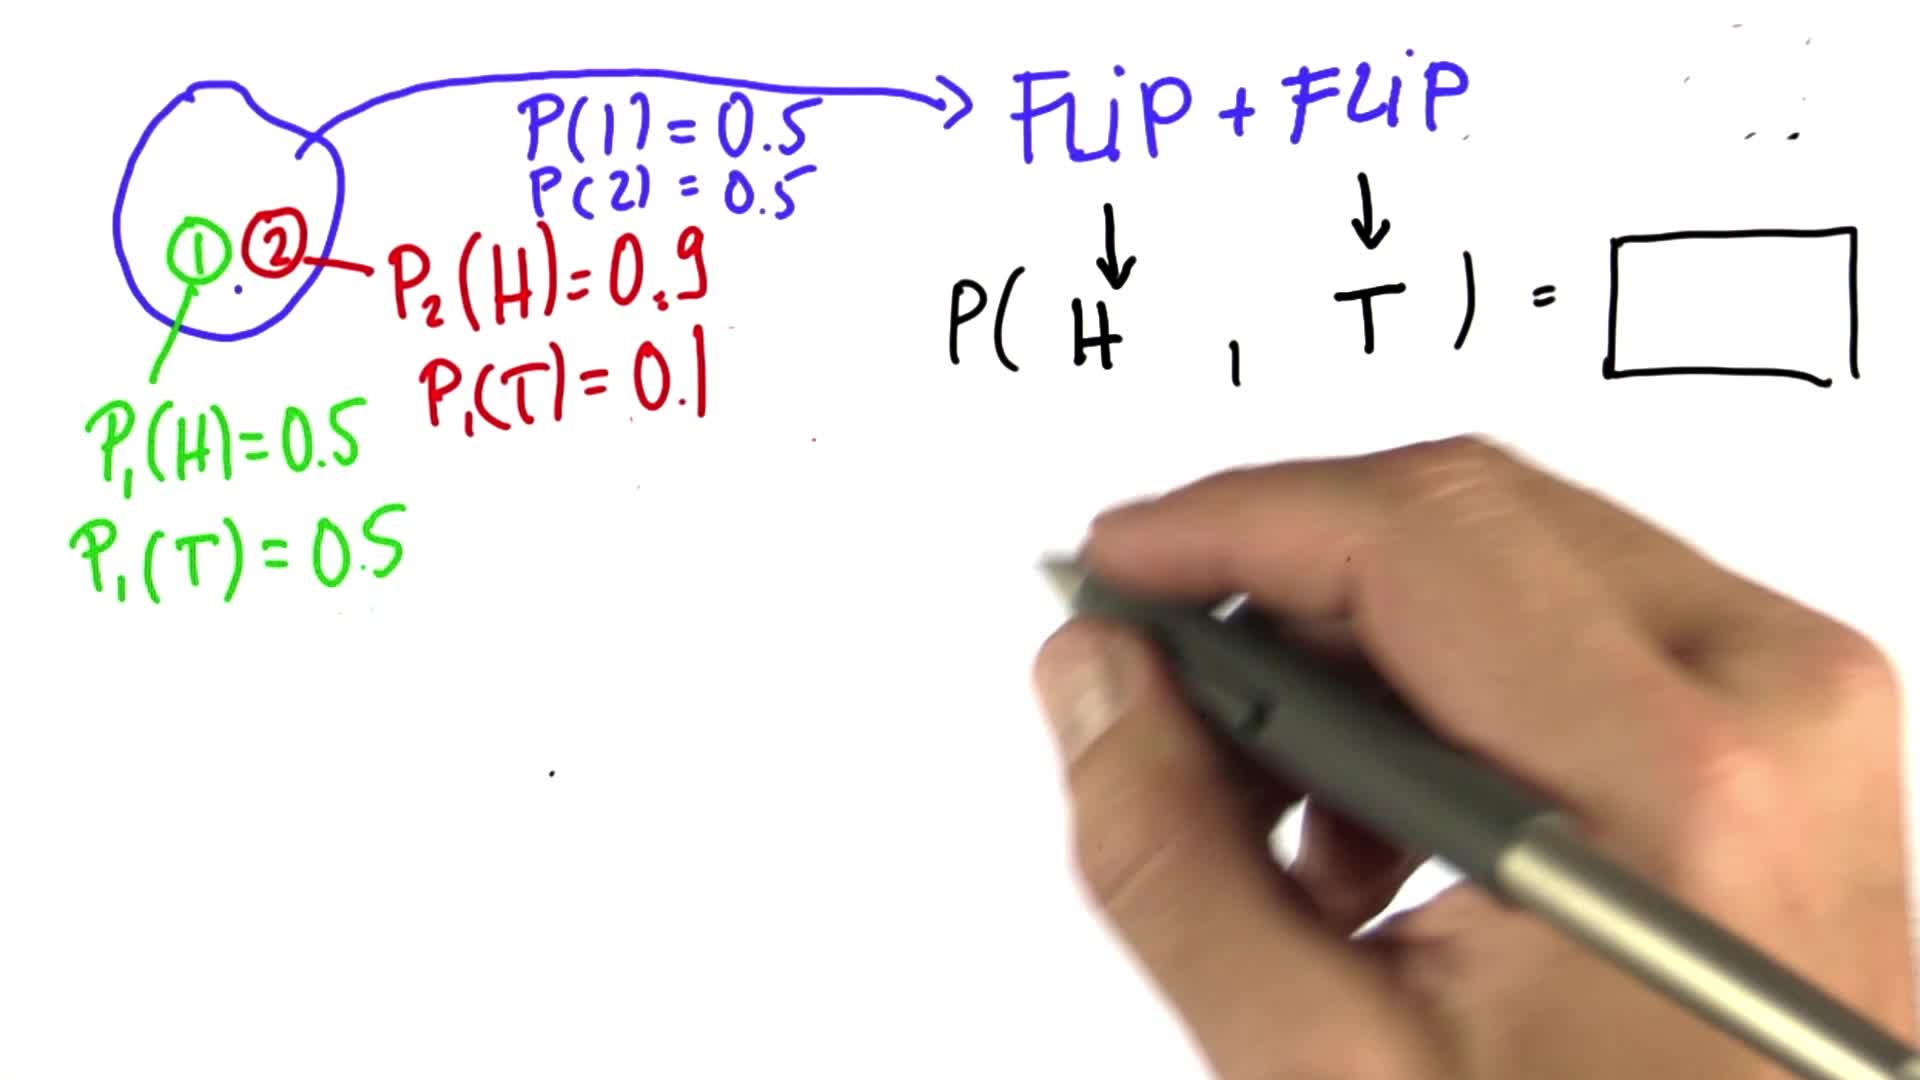 P(1) = 0.5
P(2) = 0.5
FLiP + FLiP
1 2
P₂(H) = 0.9
P₁(T) = 0.1
P( H , T ) =
P₁(H) = 0.5
P₁(T) = 0.5